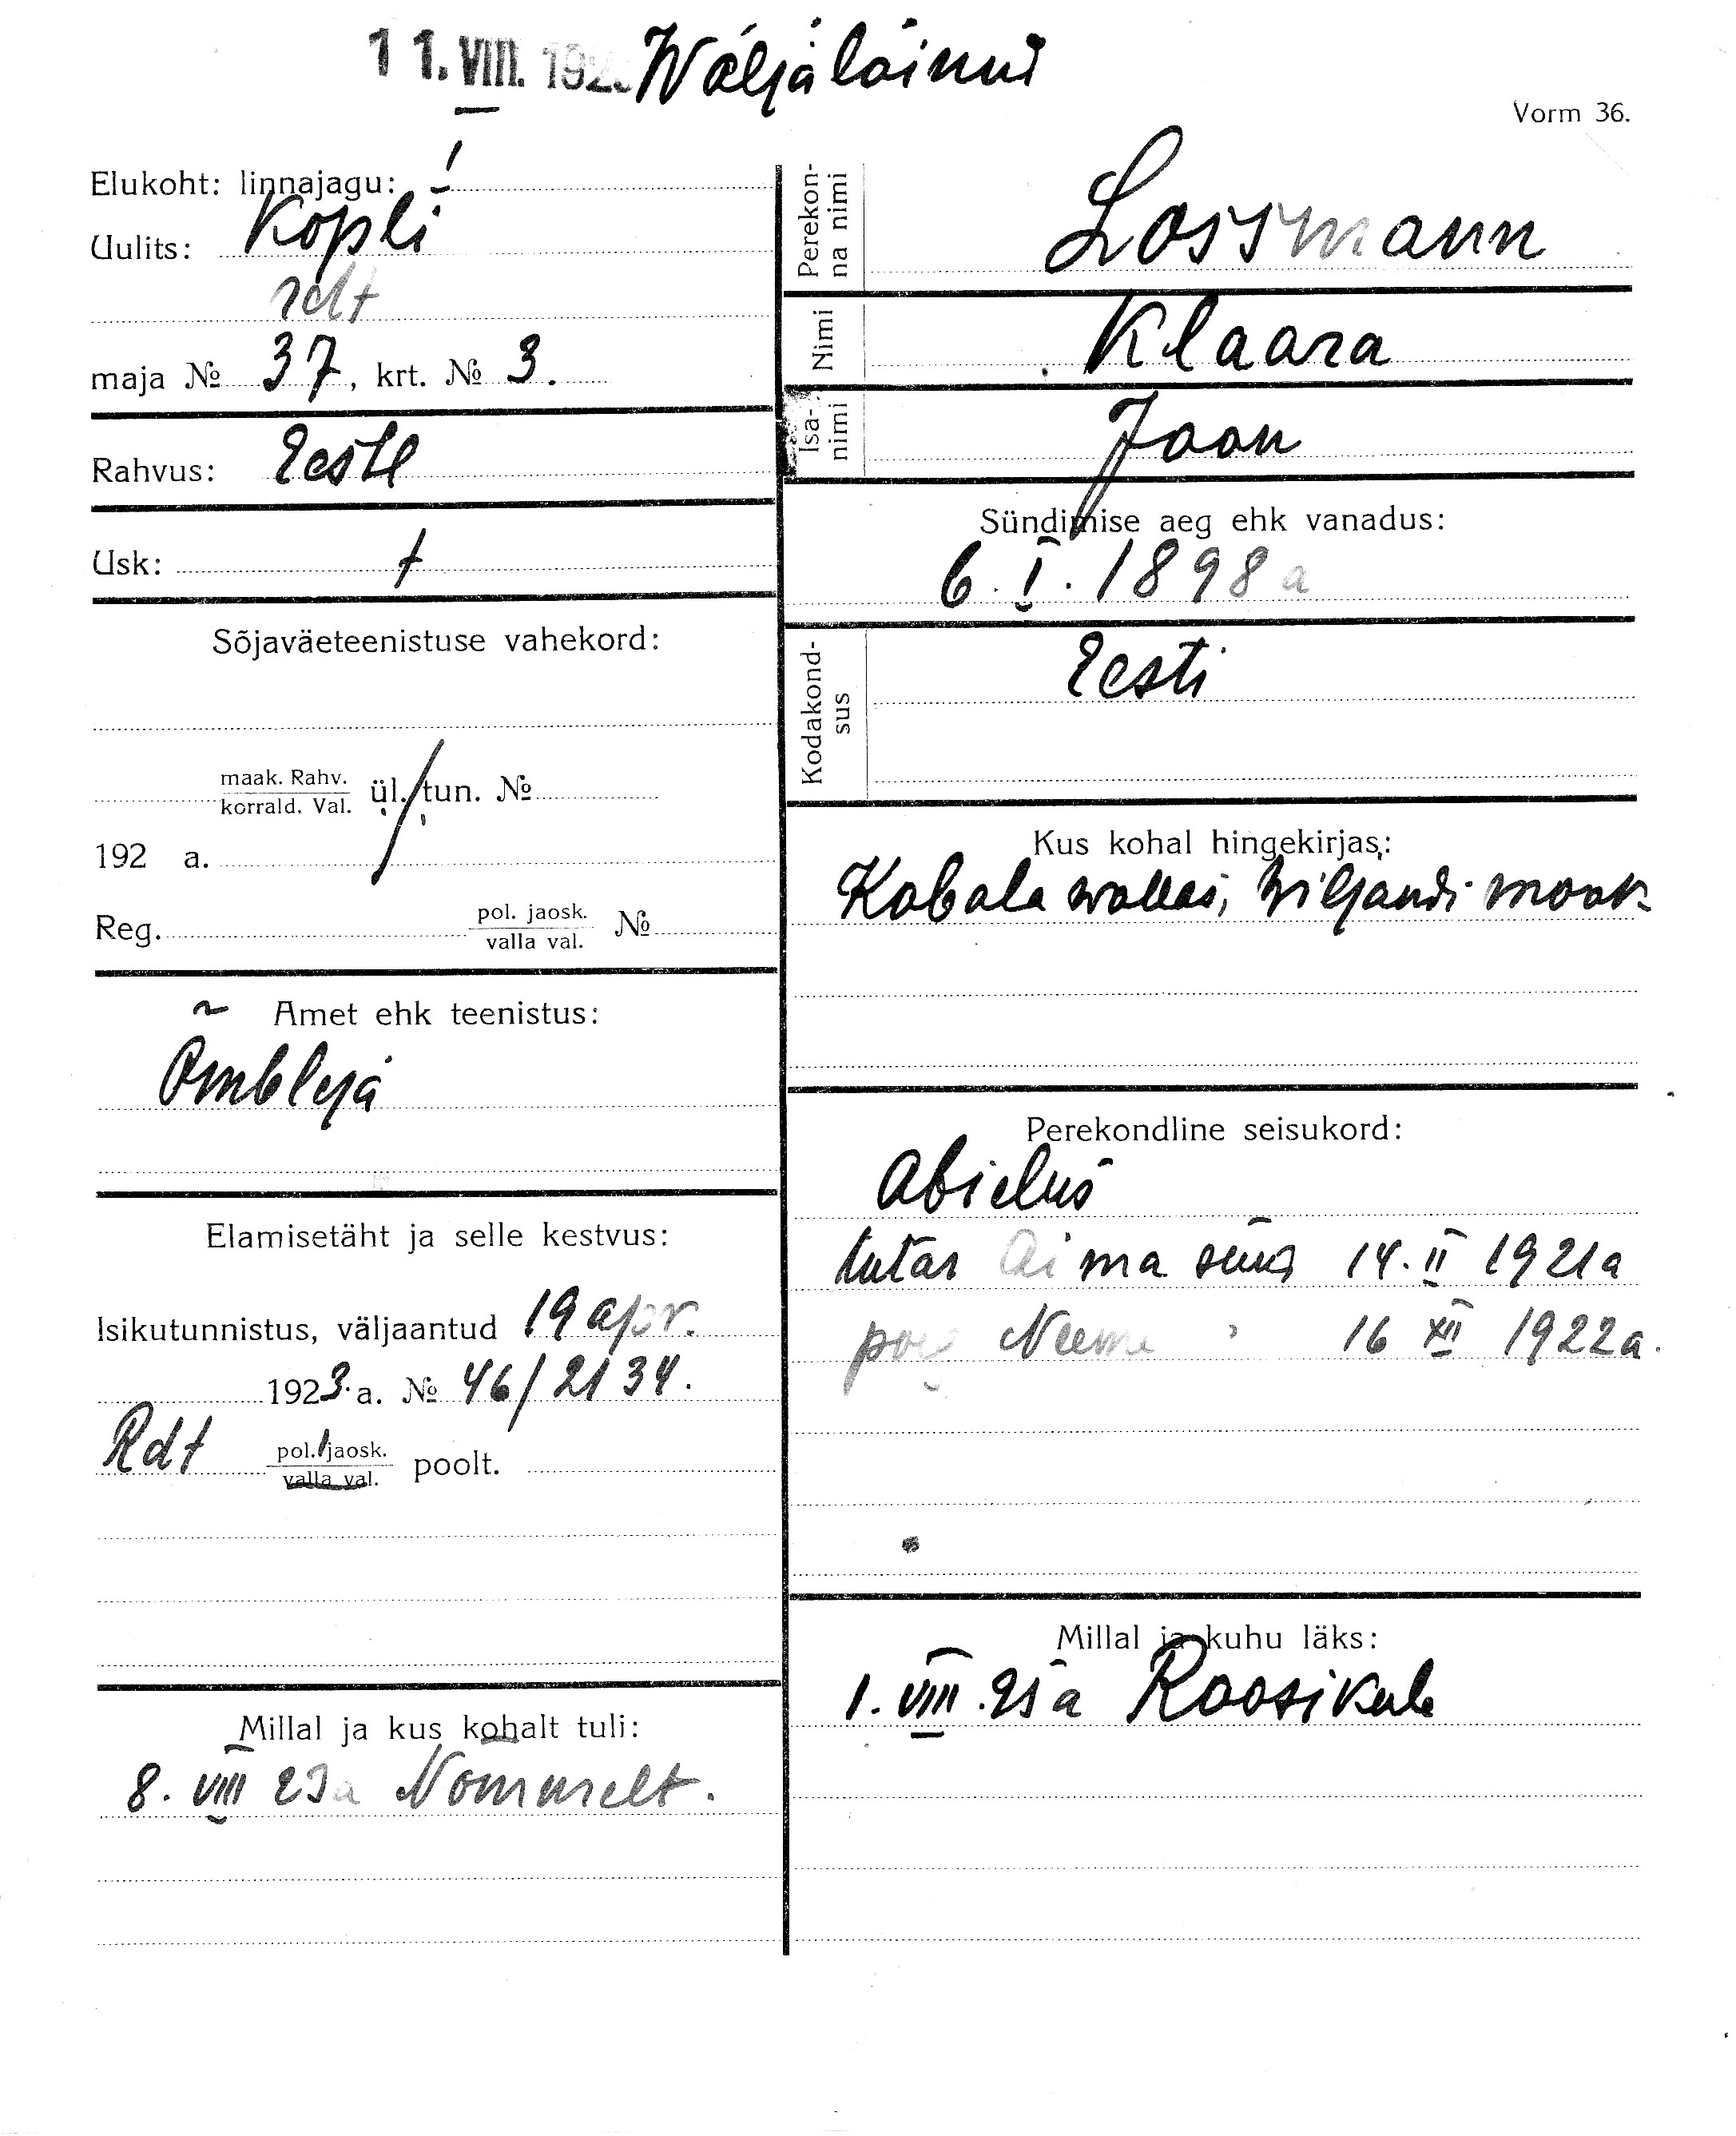 11. VIII. 192 Wäljäläinud
Vorm 36.
Elukoht: linnajagu:
Uulits: Kopli
rdt
maja № 37, krt. № 3.
Rahvus: Eestl
Usk:
Sõjaväeteenistuse vahekord:
maak. Rahv.
korrald. Val. ül. tun. №
192 a.
Reg. pol. jaosk.
valla val. №
Amet ehk teenistus:
Õmbleja
Elamisetäht ja selle kestvus:
Isikutunnistus, väljaantud 19 apr.
1923. a. № 46/2134.
Rdt pol. jaosk.
valla val. poolt.
Millal ja kus kohalt tuli:
8. VIII 23a Nõmmelt.
Perekon-
na nimi
Lossmann
Nimi
Klaara
Isa-
nimi
Jaan
Sündimise aeg ehk vanadus:
6. I. 1898 a
Kodakond-
sus
Eesti
Kus kohal hingekirjas:
Kabala wallas, Wiljandi maak.
Perekondline seisukord:
Abielus
tütar Aima sünd 14. II 1921a
poeg Neeme " 16 XII 1922a.
Millal ja kuhu läks:
1. VIII. 25 a Roosikule